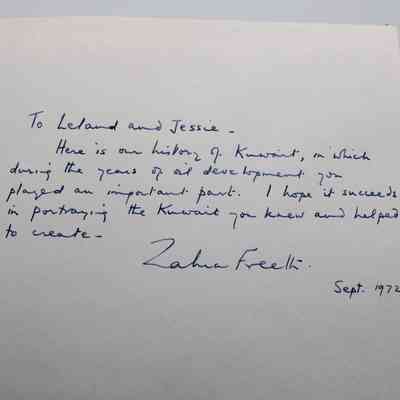 To Leland and Jessie -
Here is our history of Kuwait, in which
during the years of oil development you
played an important part. I hope it succeeds
in portraying the Kuwait you knew and helped
to create -
Zahra Freeth.
Sept. 1972